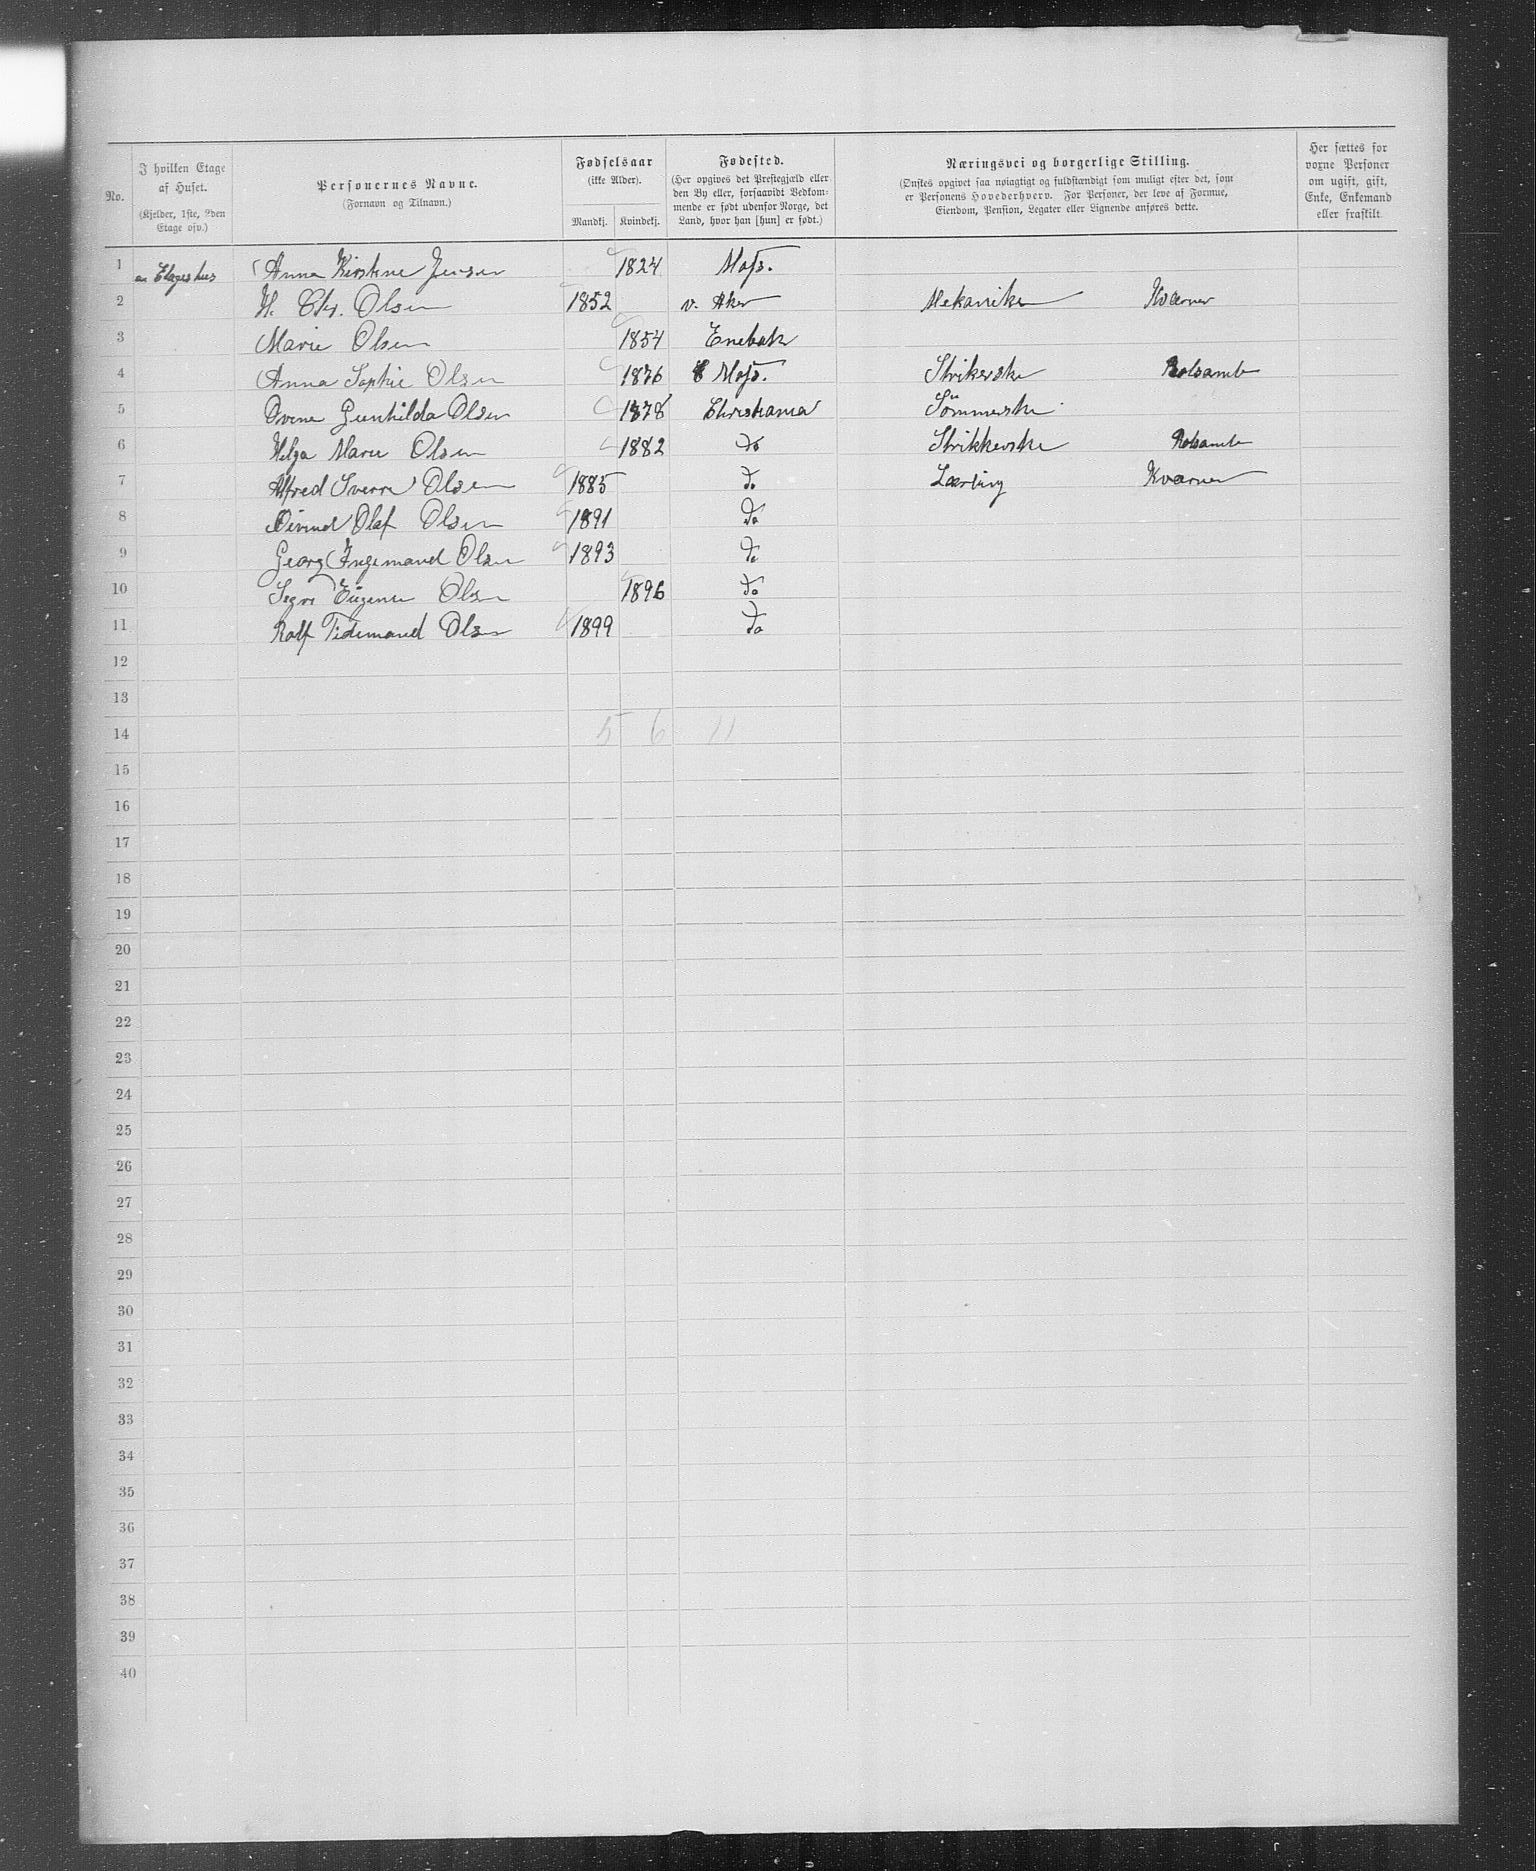 No.
I hvilken Etage af Huset.
(Kjelder, 1ste, 2den Etage osv.)
Personernes Navne.
(Fornavn og Tilnavn.)
Fødselsaar
(ikke Alder).
Mandkj. Kvindekj.
Fødested.
(Her opgives det Præstegjæld eller den By eller, forsaavidt Vedkommende er født udenfor Norge, det Land, hvor han [hun] er født.)
Næringsvei og borgerlige Stilling.
(Ønskes opgivet saa nøiagtigt og fuldstændigt som muligt efter det, som er Personens Hovederhverv. For Personer, der leve af Formue, Eiendom, Pension, Legater eller Lignende anføres dette.
Her sættes for voxne Personer om ugift, gift, Enke, Enkemand eller fraskilt
1 Etageshus Anna Kirstine Jensen 1824 Moss.
2 H. Chr. Olsen 1852 v. Aker Mekaniker Kværner
3 Marie Olsen 1854 Enebak
4 Anna Sophie Olsen 1876 Moss. Strikerske
5 Gunhilda Olsen 1878 Christiania Sömmerske
6 Helga Marie Olsen 1882 do Strikkerske
7 Alfred Sverre Olsen 1885 do Lærling Kværner
8 Öivind Olaf Olsen 1891 do
9 Georg Ingemand Olsen 1893 do
10 Eugenie Olsen 1896 do
11 Rolf Tidemand Olsen 1899 do
12
13
14 5 6 11
15
16
17
18
19
20
21
22
23
24
25
26
27
28
29
30
31
32
33
34
35
36
37
38
39
40